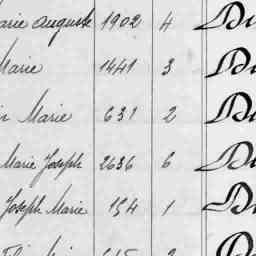 Marie Auguste 1902 4 Du
Marie 1441 3 Du
Marie 631 2 Du
Marie Joseph 2636 6 Du
Joseph Marie 154 1 Du